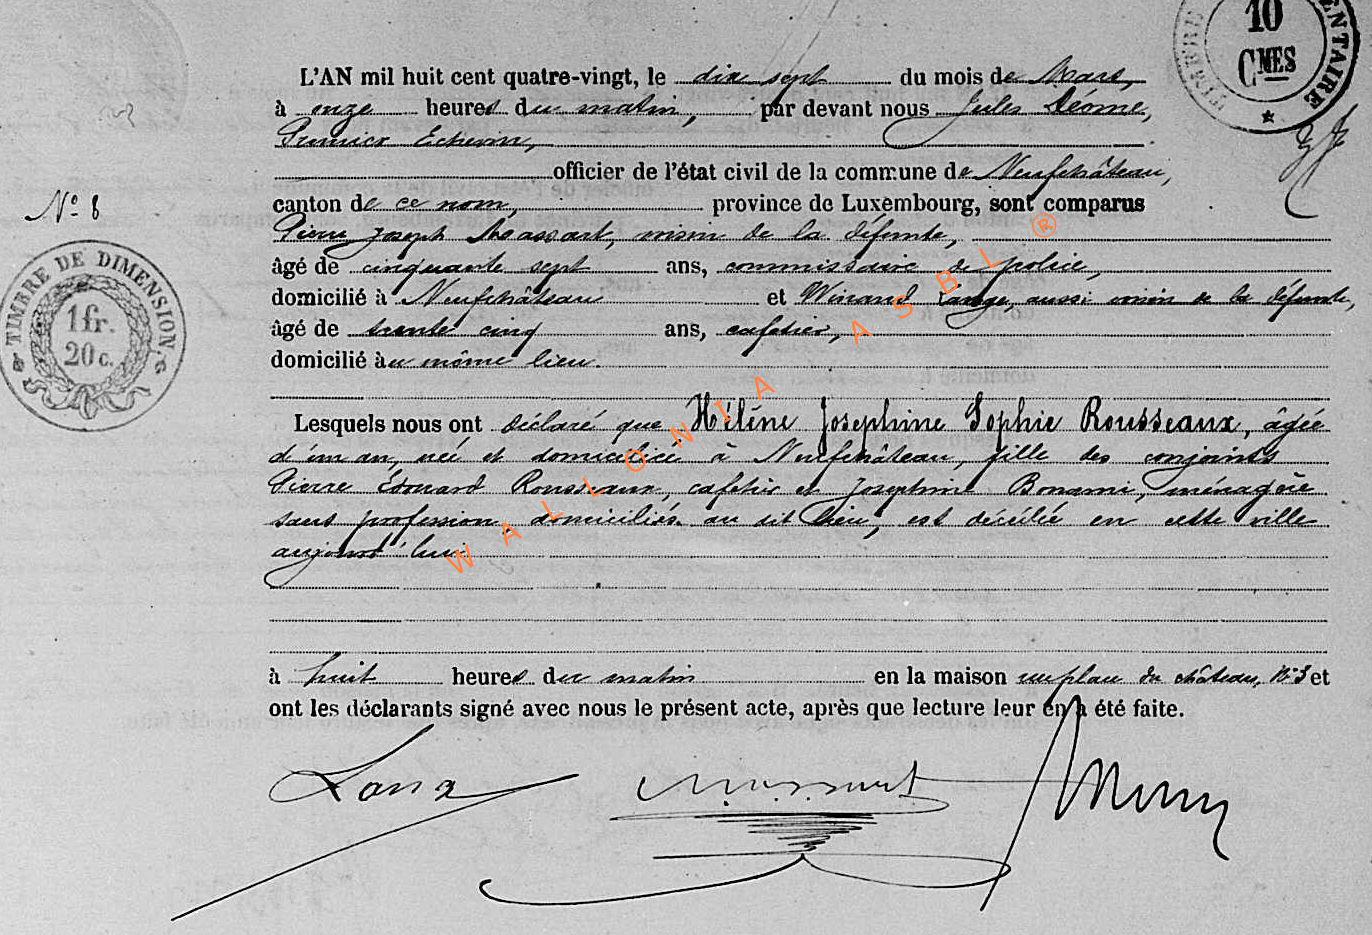 TIMBRE
10
CMES
ENTAIRE
L'AN mil huit cent quatre-vingt, le dix sept du mois de Mars,
à onze heures du matin, par devant nous Jules Déome,
Premier Echevin,
officier de l'état civil de la commune de Neufchâteau,
N° 8
canton de ce nom, province de Luxembourg, sont comparus
Pierre Joseph Massart, voisin de la défunte,
âgé de cinquante sept ans, commissaire de police,
domicilié à Neufchâteau et Winand Lange, aussi voisin de la défunte,
âgé de trente cinq ans, cafetier,
domicilié au même lieu.
TIMBRE DE DIMENSION
1fr.
20 c.
Lesquels nous ont déclaré que Hélène Josephine Sophie Rousseaux, âgée
d'un an, née et domiciliée à Neufchâteau, fille des conjoints
Pierre Edouard Rousseaux, cafetier et Josephine Bonami, ménagère
sans profession domiciliés au dit lieu, est décédée en cette ville
aujourd'hui
à huit heures du matin en la maison place du château, N° 5 et
ont les déclarants signé avec nous le présent acte, après que lecture leur en a été faite.
Massart
WALLONIA ASBL ®